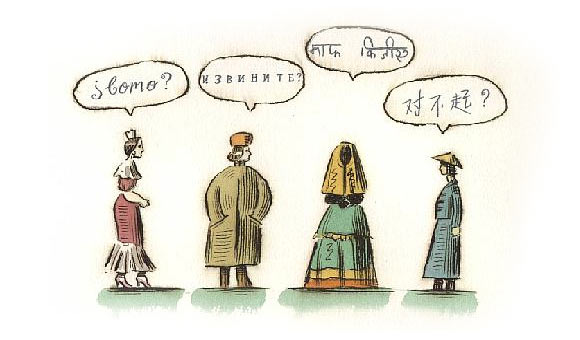 ¿Como?
ИЗВИНИТЕ?
माफ़ कीजीए
对不起?